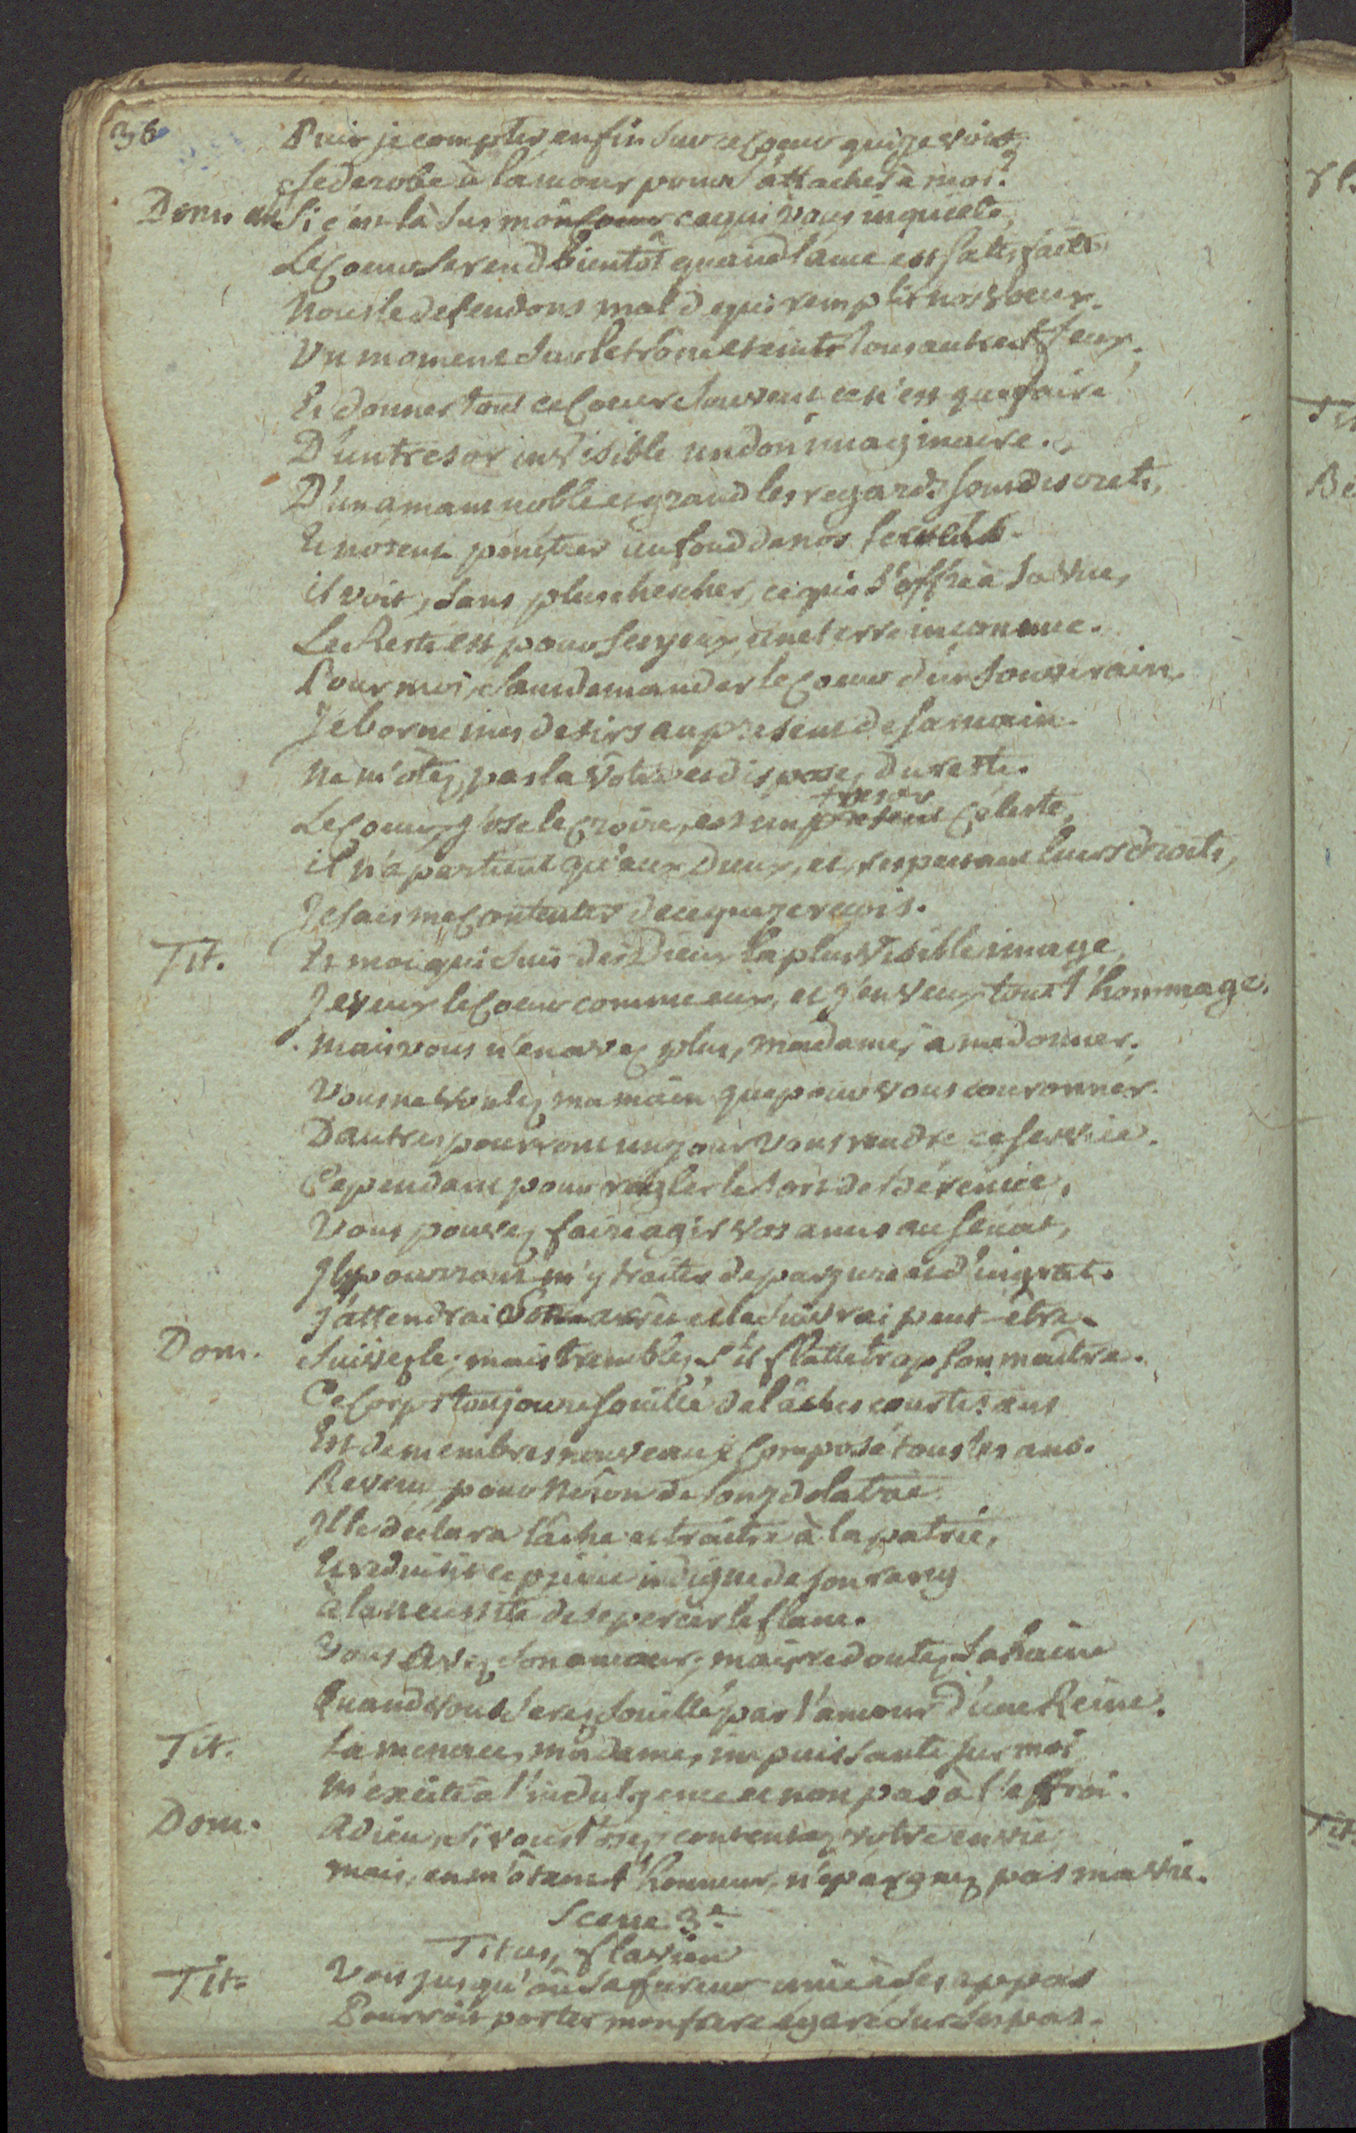 36
Puis je compter enfin sur ce Coeur que je vois
Se derobe à l'amour pour s'attacher à moi?
Dom. Si c'est là sur mon Coeur ce qui vous inquiete,
Le Coeur se rend bientôt quand l'ame est satisfaite
Nous le defendons mal de qui remplit nos voeux.
Un moment sur le trône éteint tous autres feux,
Et donner tout ce Coeur souvent ce n'est que faire
D'un tresor invisible un don imaginaire.
D'un amant noble et grand les regards sont discrets,
Et n'osent penétrer au fond de nos secrets.
il voit, sans plus chercher, ce qui s'offre à sa vue,
Le Reste est pour ses yeux une terre inconnue.
Pour moi, sans demander le Coeur d'un souverain,
Je borne mes desirs au present de sa main.
Ne m'otez pas la votre et disposez du reste.
tresor
Le Coeur, j'ose le Croire, est un present Céleste,
il n'apartient qu'aux Dieux, et, respectant leurs droits,
Je sais me Contenter de ce que je reçois.
Tit. Et moi qui suis des Dieux la plus visible image,
Je veux le Coeur comme eux, et j'en veux tout l'hommage.
Mais vous n'en avez plus, Madame, à me donner,
Vous ne voulez ma main que pour vous couronner.
D'autres pourront un jour vous rendre ce service.
Cependant pour régler le sort de Bérénice,
Vous pouvez faire agir vos amis au sénat,
Ils pourront m'y traiter de parjure et d'ingrat.
J'attendrai son arrêt et le suivrai peut-être.
Dom. Suivez le; mais tremblez s'il flatte trop son maître.
Ce Corps toujours souillé de lâches courtisans
Est de membres nouveaux Composé tous les ans.
Revenu pour Néron de son idolatrie
Il le declara lâche et traître à la patrie,
Et reduisit ce prince indigne de son rang
à la necessité de se percer le flanc.
Vous avez son amour, mais redoutez sa haine
Quand vous serez souillé par l'amour d'une Reine.
Tit. La menace, madame, impuissante sur moi
M'excite à l'indulgence et non pas à l'effroi.
Dom. Adieu, si vous l'osez, contentez votre envie,
mais, en m'ôtant l'honneur, n'épargnez pas ma vie.
Scene 3e
Titus, flavien
Tit. Vois jusqu'où sa fureur unie à ses appas
Pourroit porter mon frere égaré sur ses pas.